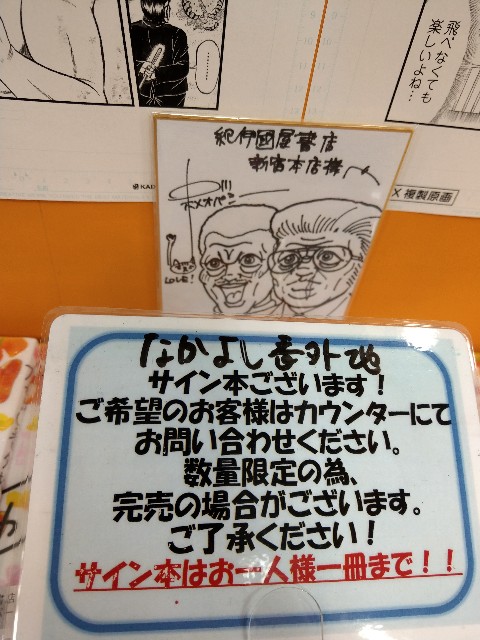 ……
飛べなくても
楽しいよね…
複製原画
紀伊國屋書店
新宿本店様
カメオパン
LOVE!
なかよし番外地
サイン本ございます！
ご希望のお客様はカウンターにて
お問い合わせください。
数量限定の為、
完売の場合がございます。
ご了承ください！
サイン本はお一人様一冊まで！！